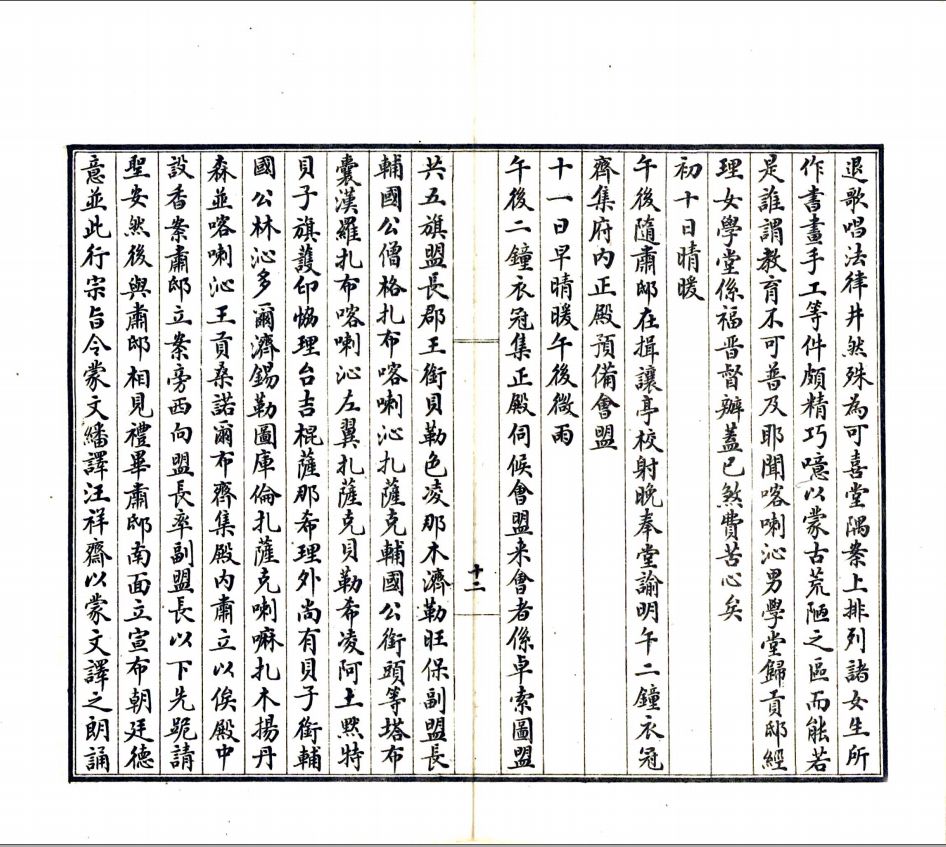 退歌唱法律井然殊為可喜堂隅案上排列諸女生所
作書畫手工等件頗精巧噫以蒙古荒陋之區而能若
是誰謂教育不可普及耶聞喀喇沁男學堂歸貢邸經
理女學堂係福晋督辦蓋已煞費苦心矣
初十日晴暖
午後隨肅邸在揖讓亭校射晚奉堂諭明午二鐘衣冠
齊集府內正殿預備會盟
十一日早晴暖午後微雨
午後二鐘衣冠集正殿伺候會盟來會者係卓索圖盟
十二
共五旗盟長郡王銜貝勒色凌那木濟勒旺保副盟長
輔國公僧格扎布喀喇沁扎薩克輔國公銜頭等塔布
囊漢羅扎布喀喇沁左翼扎薩克貝勒希凌阿土默特
貝子旗護印協理台吉棍薩那希理外尚有貝子銜輔
國公林沁多爾濟錫勒圖庫倫扎薩克喇嘛扎木揚丹
森並喀喇沁王貢桑諾爾布齊集殿內肅立以俟殿中
設香案肅邸立案旁西向盟長率副盟長以下先跪請
聖安然後與肅邸相見禮畢肅邸南面立宣布朝廷德
意並此行宗旨令蒙文繙譯汪祥齋以蒙文譯之朗誦